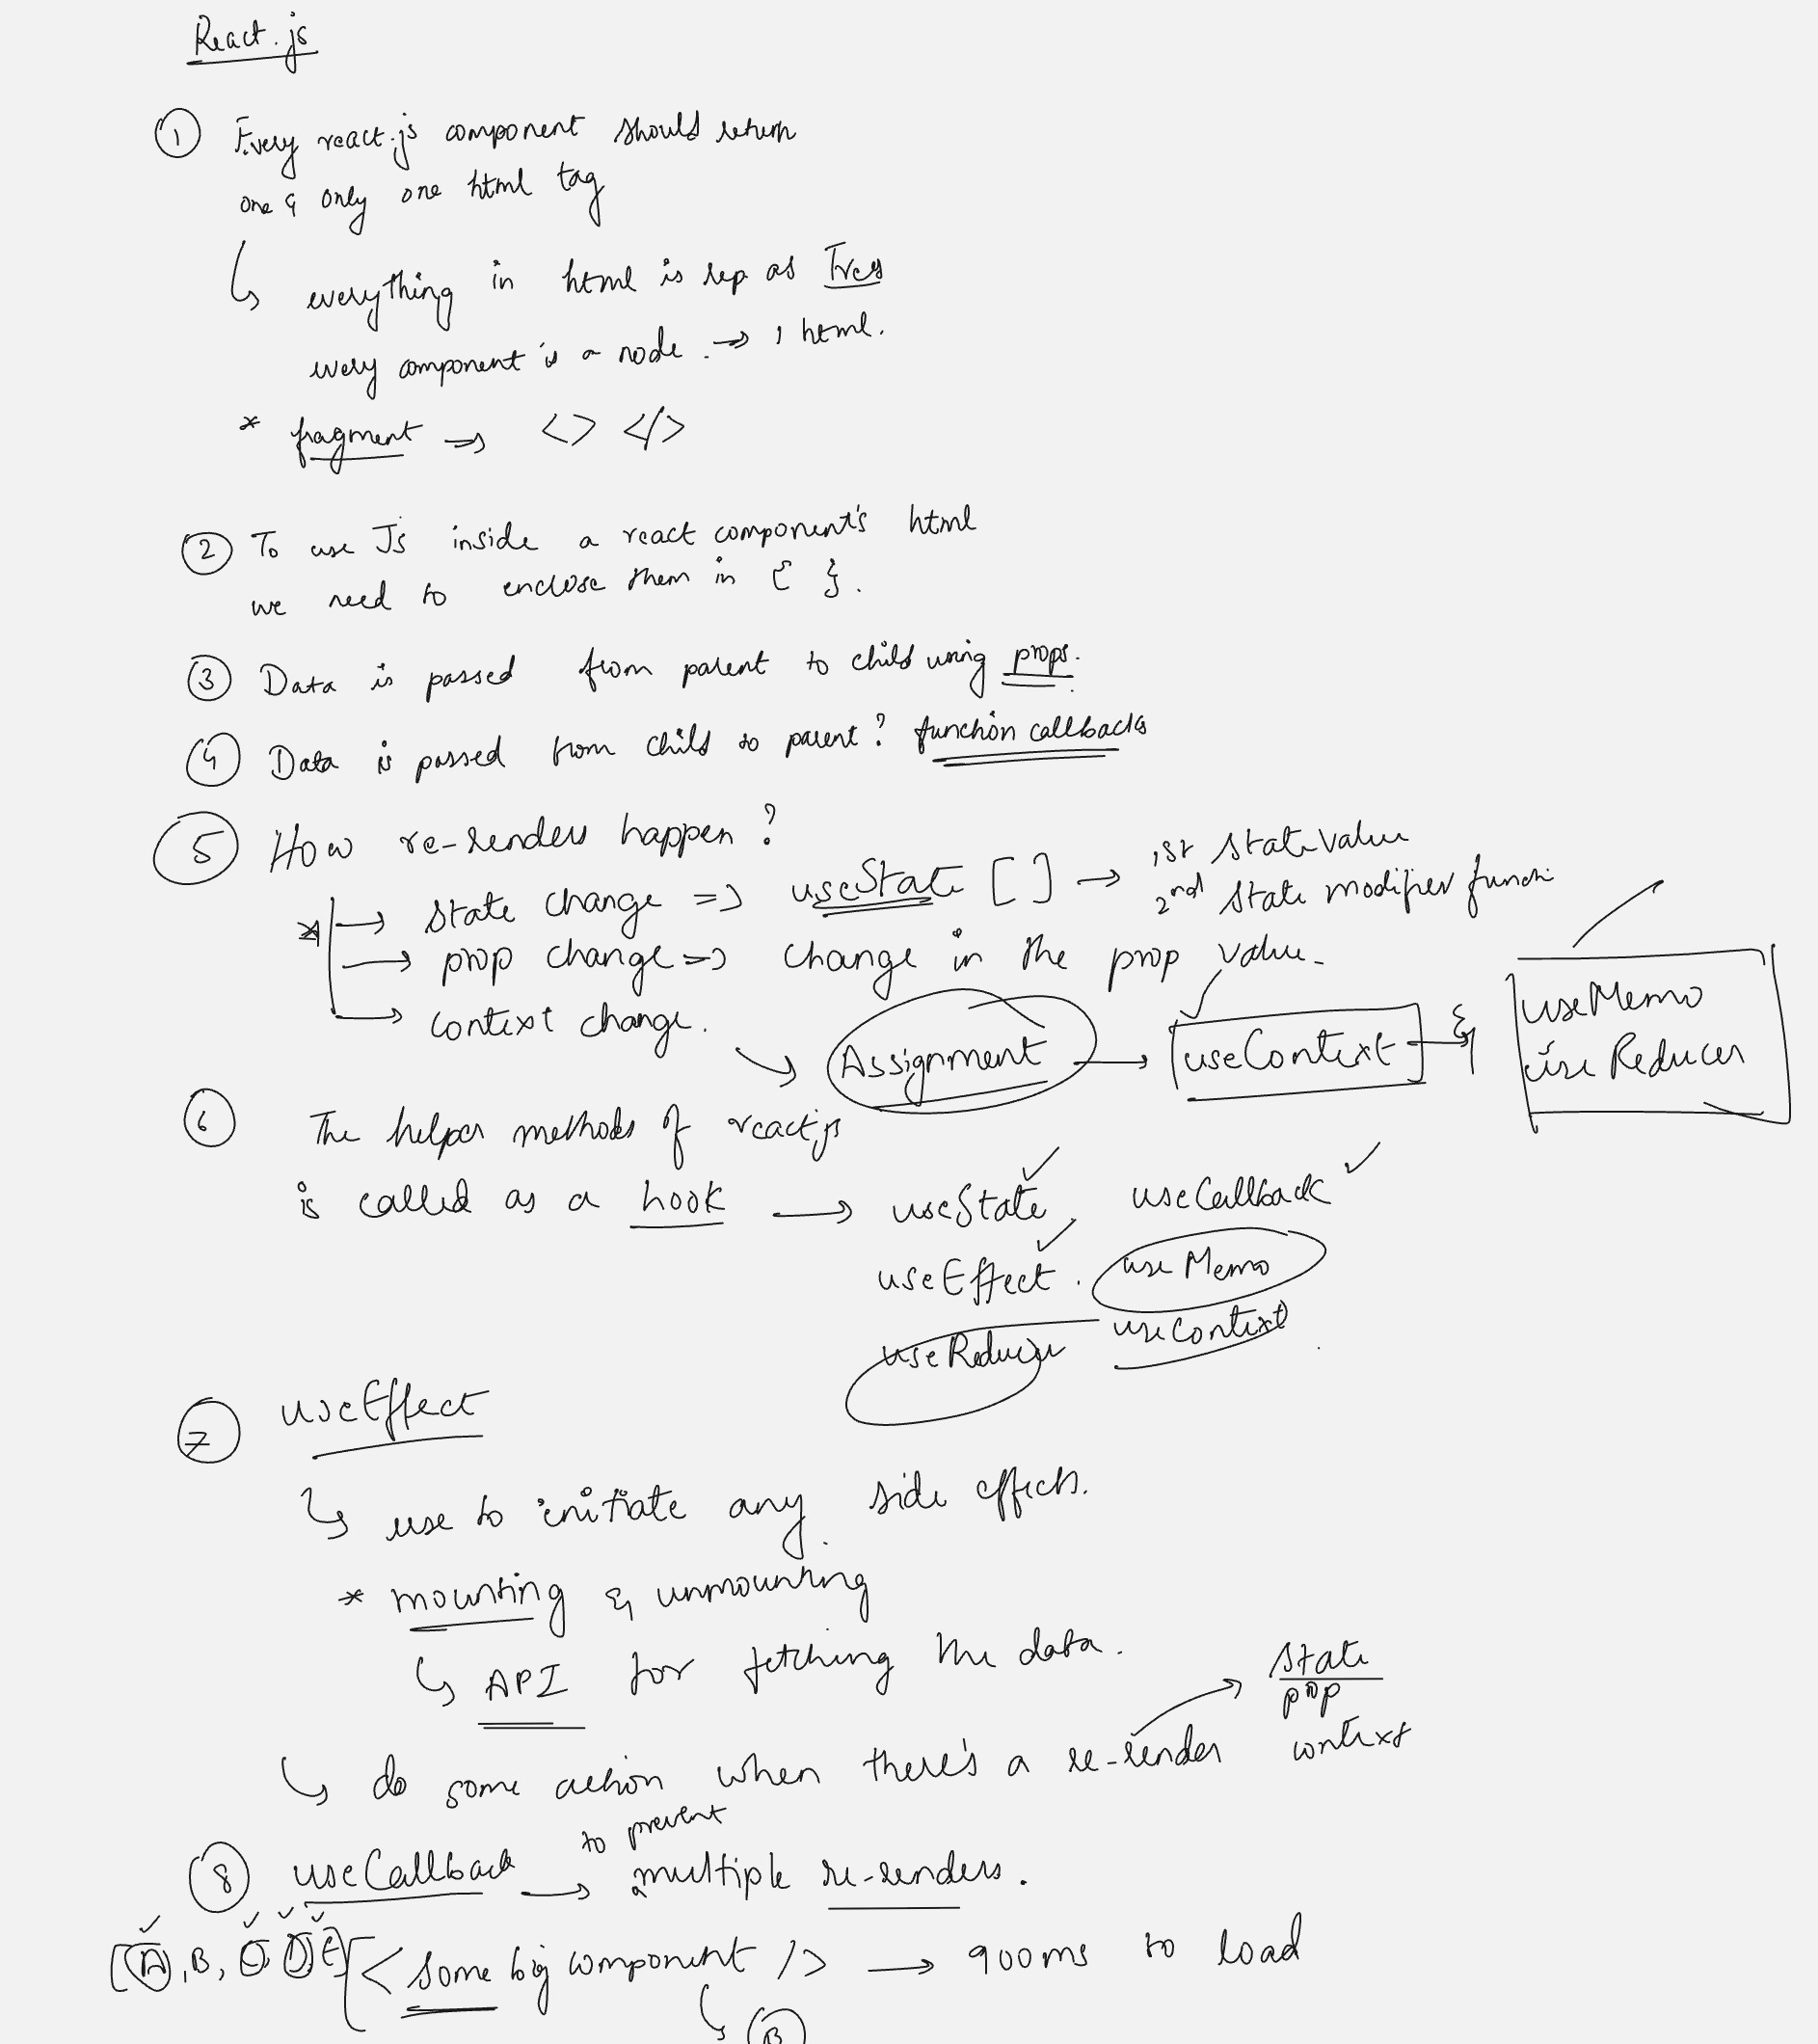 React.js
① Every react.js component should return
one & only one html tag
↳ everything in html is rep as Trees
every component is a node. → 1 html.
* fragment ⇒ <> </>
② To use Js inside a react component's html
we need to enclose them in { }.
③ Data is passed from parent to child using props.
④ Data is passed from child to parent? function callbacks
⑤ How re-renders happen?
* → state change => useState [ ] → 1st state value
2nd state modifier functi
→ prop change => change in the prop value.
→ context change.
↘ Assignment → useContext → &
useMemo
useReducer
⑥ The helper methods of react.js
is called as a hook → useState. ✓ useCallback ✓
useEffect. ✓ useMemo
useReducer useContext
⑦ useEffect
↳ use to initiate any side effects.
* mounting & unmounting
↳ API for fetching the data.
↳ do some action when there's a re-render → state
prop
context
⑧ useCallback → to prevent multiple re-renders.
[A, B, C, D, E] < some big component /> → 900ms to load
↳ B